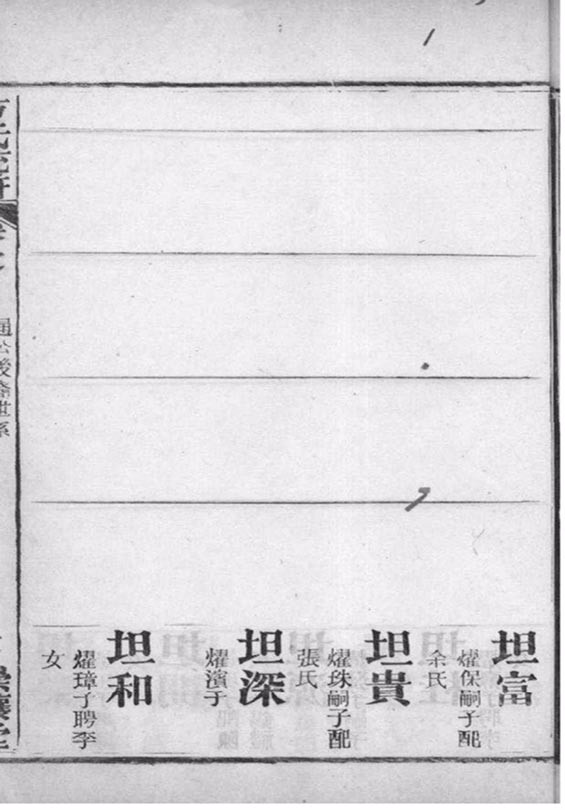 坦富
燿保嗣子配
余氏
坦貴
燿珠嗣子配
張氏
坦深
燿濱子
坦和
燿璋子聘李
女
公後裔世系